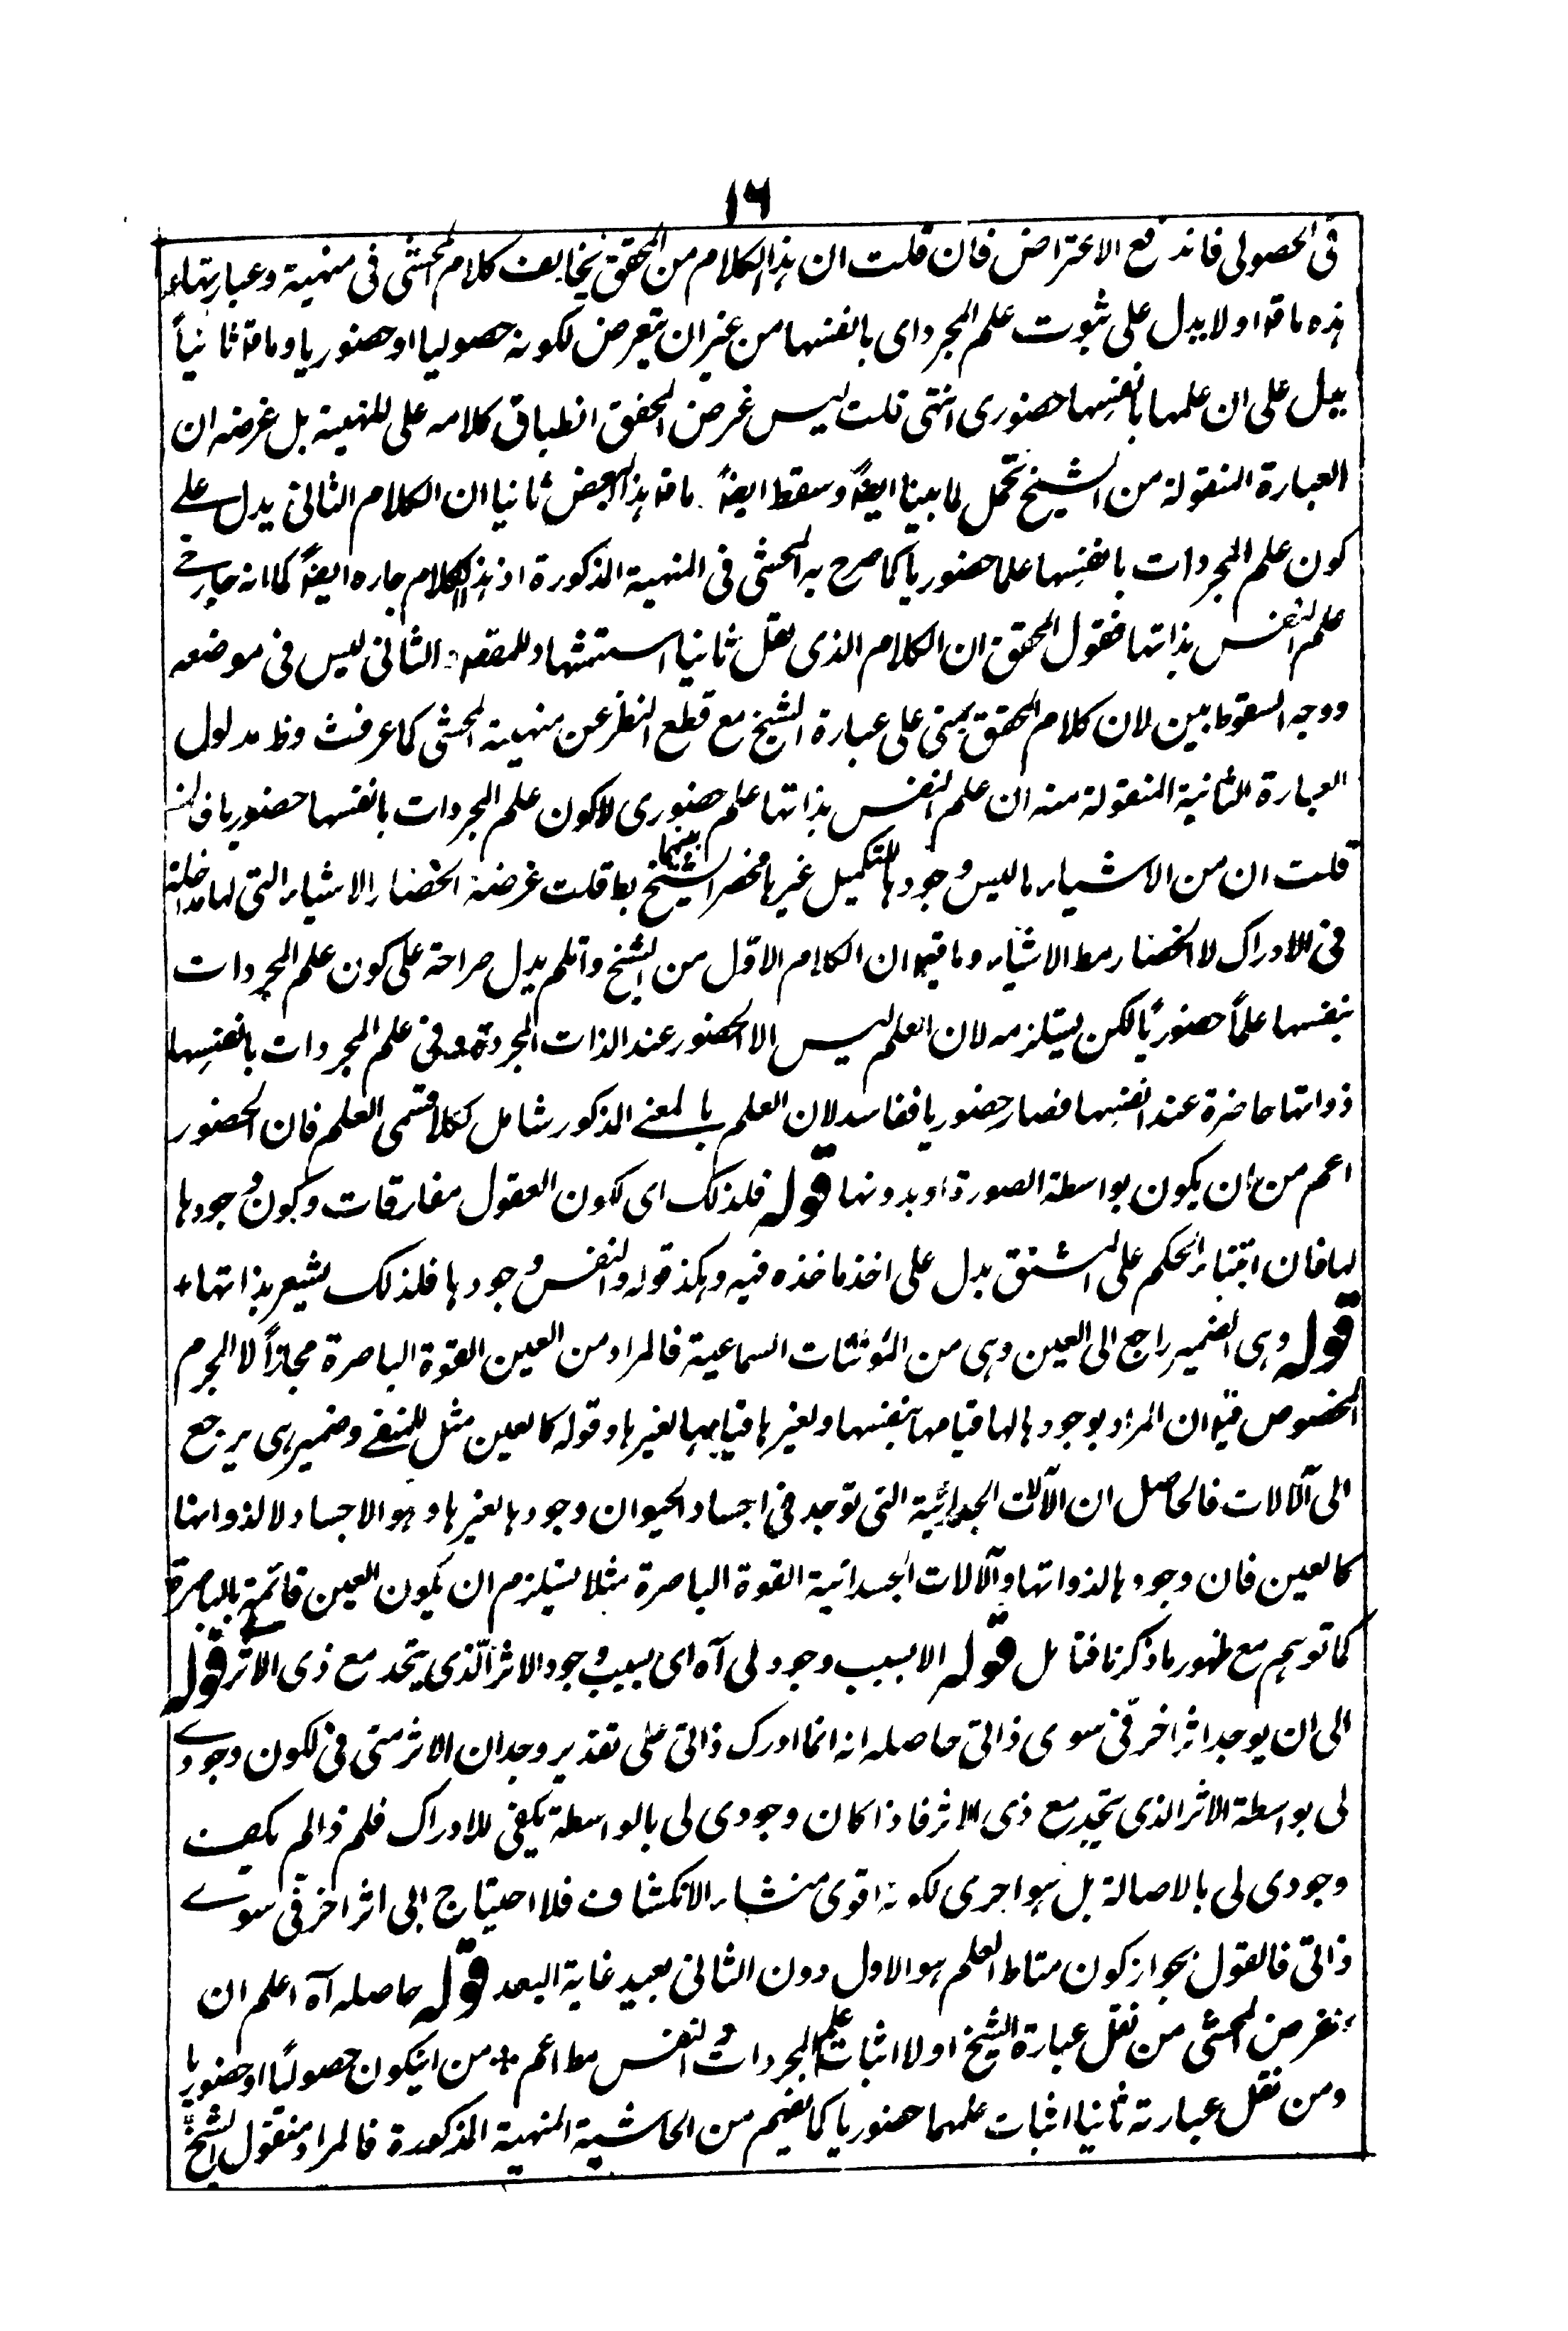 ١٦
فى الحصولى فاندفع الاعتراض فان قلت ان هذا الكلام من المحقق يخالف كلام المحشى فى منهية وعبارتها
هذه ما قه اولا يدل على ثبوت علم المجرداى بانفسها من غيران يتعرض لكونه حصوليا او حضوريا وما قه ثانياً
يدل على ان علمها بانفسها حضورى انتهى قلت ليس غرض المحقق انطباق كلامه على المنهية بل غرضه ان
العبارة المنقولة من الشيخ تحمل لما بينا ايضاً وسقط ايضاً ما قه هذا البعض ثانيا ان الكلام الثانى يدل على
كون علم المجردات بانفسها علما حضوريا كما صرح به المحشى فى المنهية المذكورة اذ هذا الكلام جار ايضاً كما انه جار فى
علم النفس بذاتها فقول المحقق ان الكلام الذى نقل ثانيا استشهاد للمقصد الثانى ليس فى موضعه
ووجه السقوط بين لان كلام المحقق بمبنى على عبارة الشيخ مع قطع النظر عن منهية المحشى كما عرفت وظ مدلول
العبارة الثانية المنقولة منه ان علم النفس بذاتها علم حضورى لا كون علم المجردات بانفسها حضوريا فان
قلت ان من الاشياء ما ليس وجودها للتكميل غيرها فحصر الشيخ بينهما بط قلت غرضه انحصار الاشياء التى لها مداخلة
فى الادراك لا انحصار مط الاشياء وما قيل ان الكلام الاول من الشيخ وان لم يدل صراحة على كون علم المجردات
بنفسها علماً حضورياً لكن يستلزمه لان العلم ليس الا الحضور عند الذات المجردة وفى علم المجردات بانفسها
ذواتها حاضرة عند انفسها فصار حضوريا ففاسد لان العلم بالمعنى المذكور شامل لكلا قسمى العلم فان الحضور
اعم من ان يكون بواسطة الصورة او بدونها قوله فلذلك اى لكون العقول مفارقات وكون وجودها
لها فان ابتناء الحكم على المشتق يدل على اخذ ماخذه فيه وهكذ قوله والنفس وجودها فلذلك يشعر بذاتها +
قوله وهى الضمير راجع الى العين وهى من المؤنثات السماعية فالمراد من العين القوة الباصرة مجازاً لا الجرم
المخصوص قيل ان المراد بوجودها لها قيامها بنفسها ولغيرها قيامها لغيرها وقوله كالعين مثل للمنفى وضمير هى يرجع
الى الآلات فالحاصل ان الآلات الجسدانية التى توجد فى اجساد الحيوان وجودها لغيرها وهو الاجساد لا لذواتها
كالعين فان وجودها لذواتها والآلات الجسدانية القوة الباصرة مثلا يستلزم ان يكون العين قائمة بالباصرة
كما توهم مع ظهور ما ذكرنا فتامل قوله الا بسبب وجود لى آه اى بسبب وجود الاثر الذى يتحد مع ذى الاثر قوله
الى ان يوجد اثر اخر فى سوى ذاتى حاصله انه انما ادرك ذاتى على تقدير وجدان الاثر منى فى لكون وجودى
لى بواسطة الاثر الذى يتحد مع ذى الاثر فاذا كان وجودى لى بالواسطة يكفى للادراك فلم ذا لم يكف
وجودى لى بالاصالة بل هو اجرى لكونه اقوى منشاء الانكشاف فلا احتياج الى اثر اخر فى سوى
ذاتى فالقول بجواز كون مناط العلم هو الاول دون الثانى بعيد غاية البعد قوله حاصله آه اعلم ان
غرض المحشى من نقل عبارة الشيخ اولا اثبات علم المجردات والنفس مط اعم + من ان يكون حصولياً او حضوريا
ومن نقل عبارته ثانيا اثبات علمهما حضوريا كما يفهم من الحاشية المنهية المذكورة فالمراد منقول الشيخ